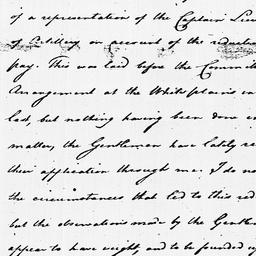 of a representation of the Captain Lieu
of Artillery on account of the reduction
pay. This was laid before the Committ
Arrangement at the White plains in
last, but nothing having been done
matter, the Gentlemen have lately re
their application through me. I do no
the circumstances that led to this red
but the observations made by the Gentle
appear to have weight, and to be founded